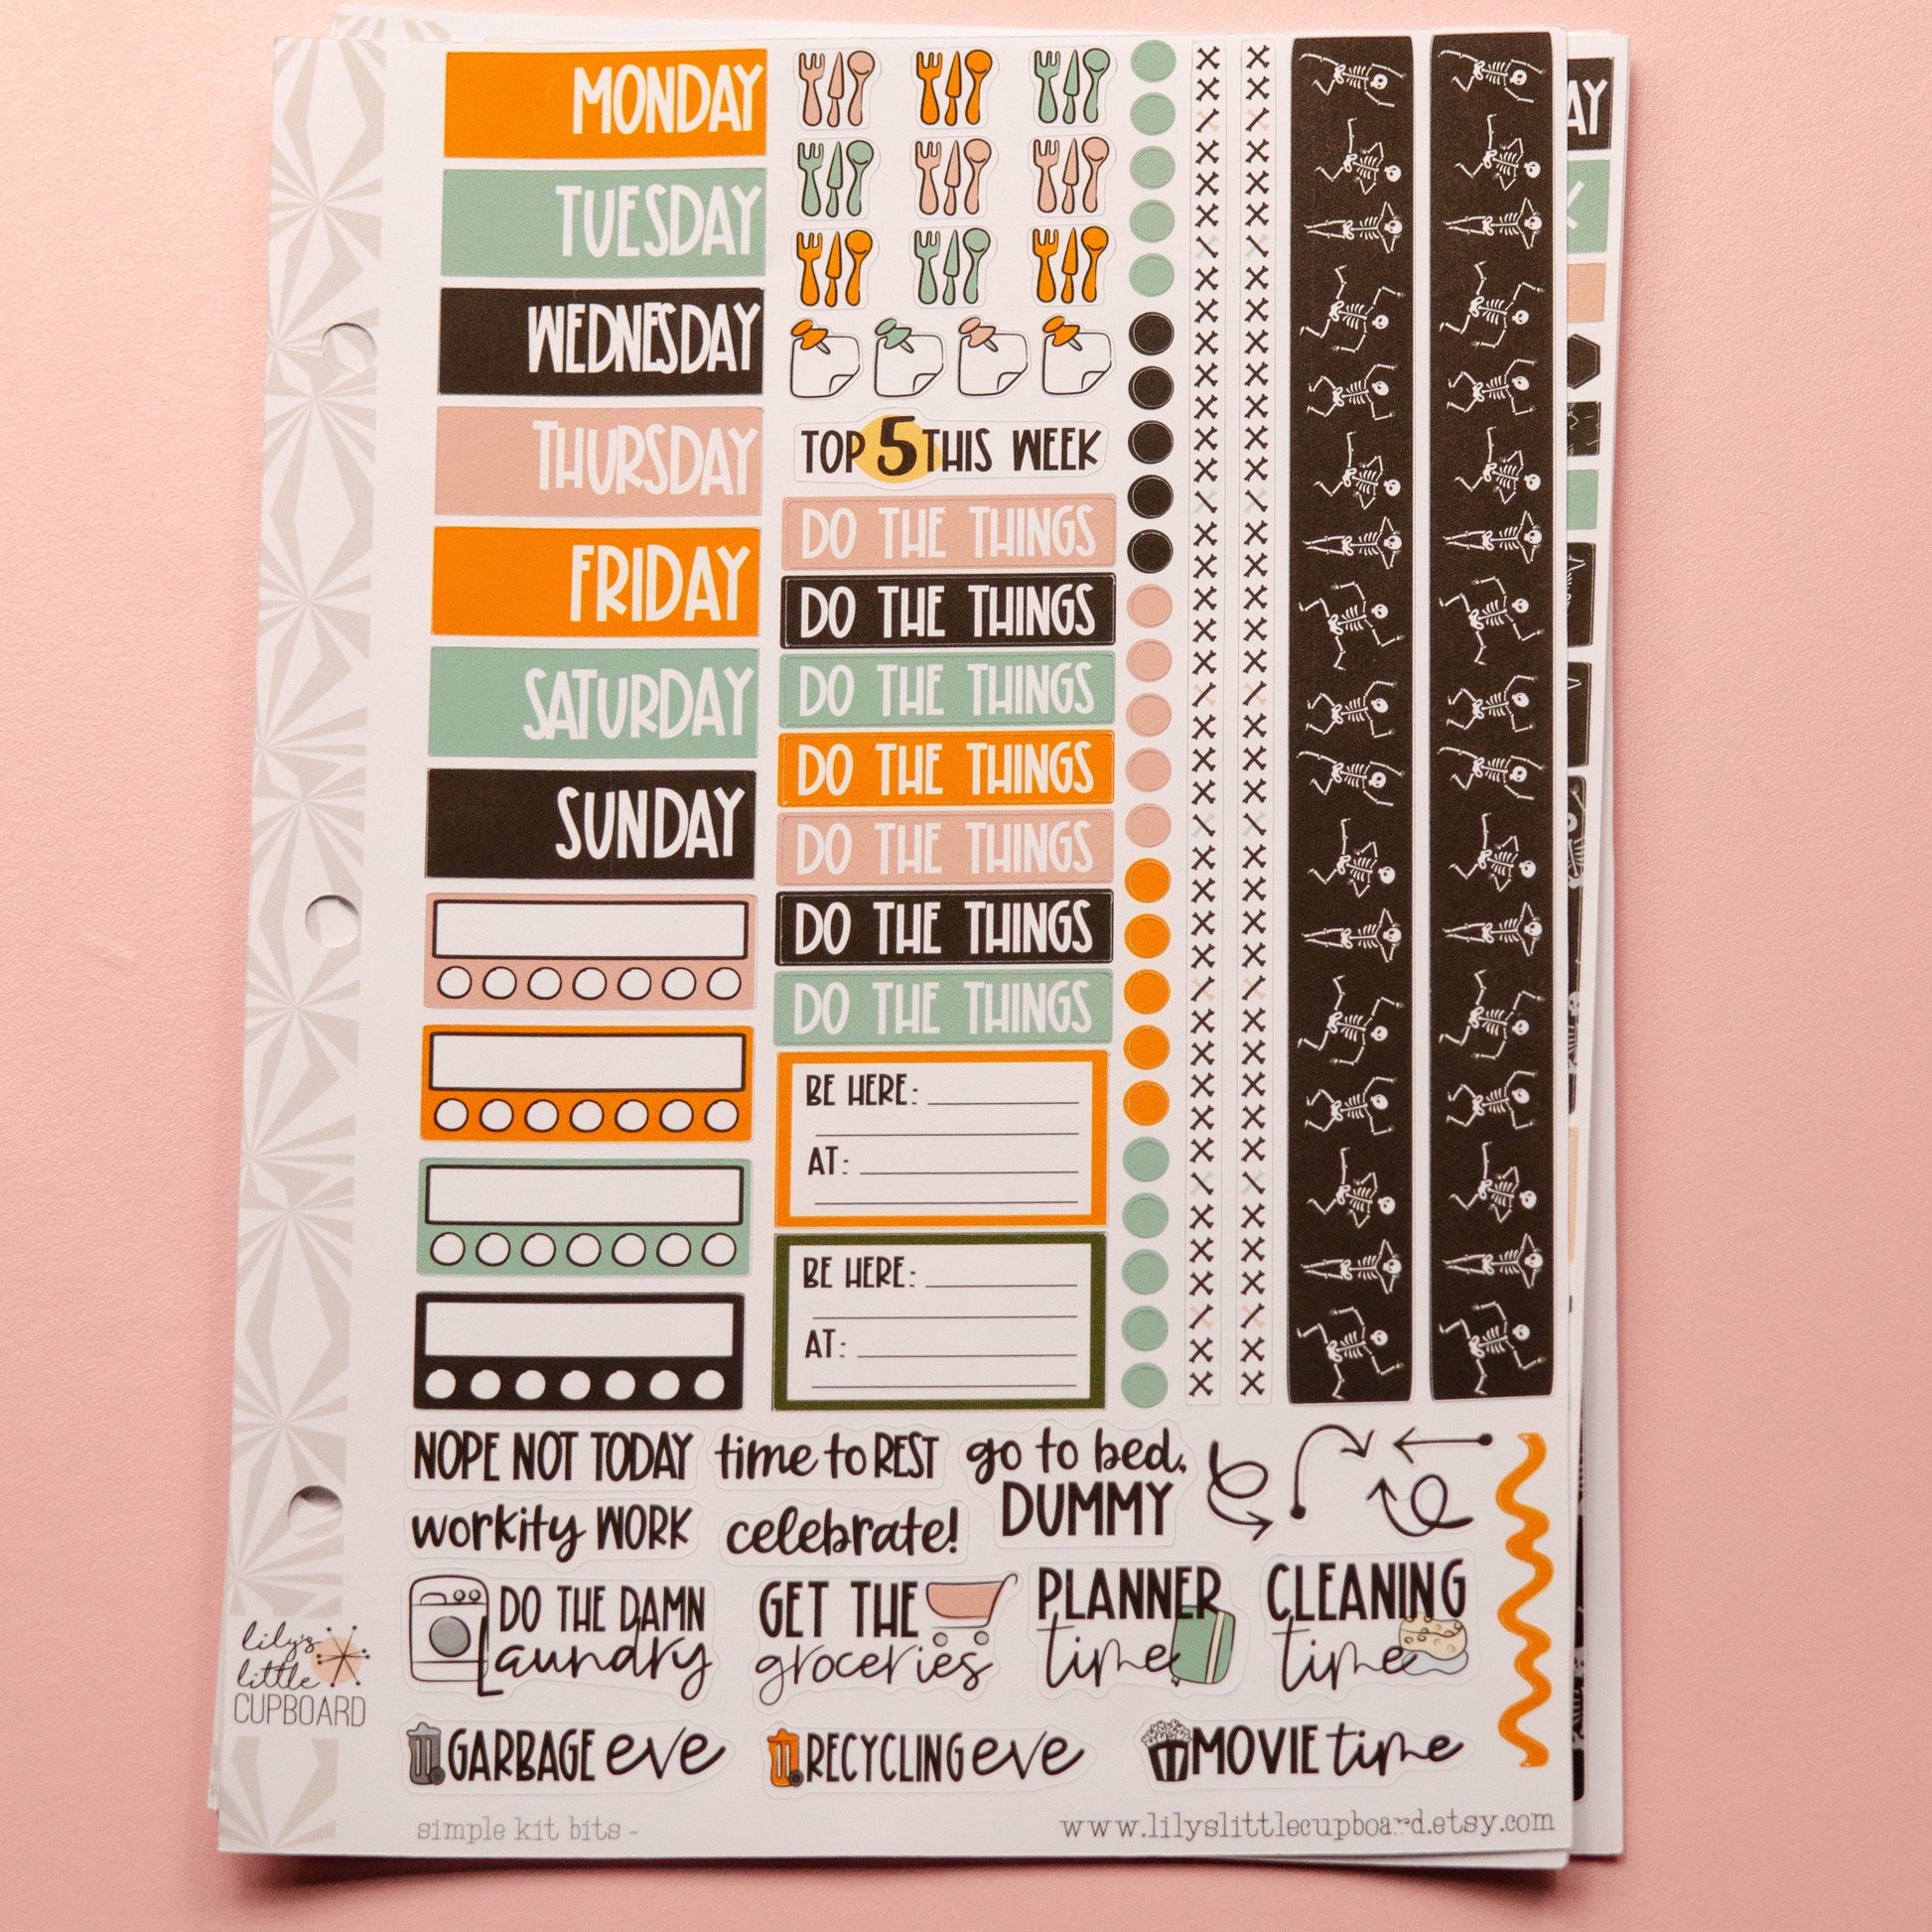 MONDAY
TUESDAY
WEDNESDAY
THURSDAY
FRIDAY
SATURDAY
SUNDAY
TOP 5 THIS WEEK
DO THE THINGS
DO THE THINGS
DO THE THINGS
DO THE THINGS
DO THE THINGS
DO THE THINGS
DO THE THINGS
BE HERE:
AT:
BE HERE:
AT:
AY
NOPE NOT TODAY
time to REST
go to bed,
DUMMY
workity WORK
celebrate!
DO THE DAMN
laundry
GET THE
groceries
PLANNER
time
CLEANING
time
GARBAGE eve
RECYCLING eve
MOVIE time
lily's
little
CUPBOARD
simple kit bits -
www.lilyslittlecupboard.etsy.com